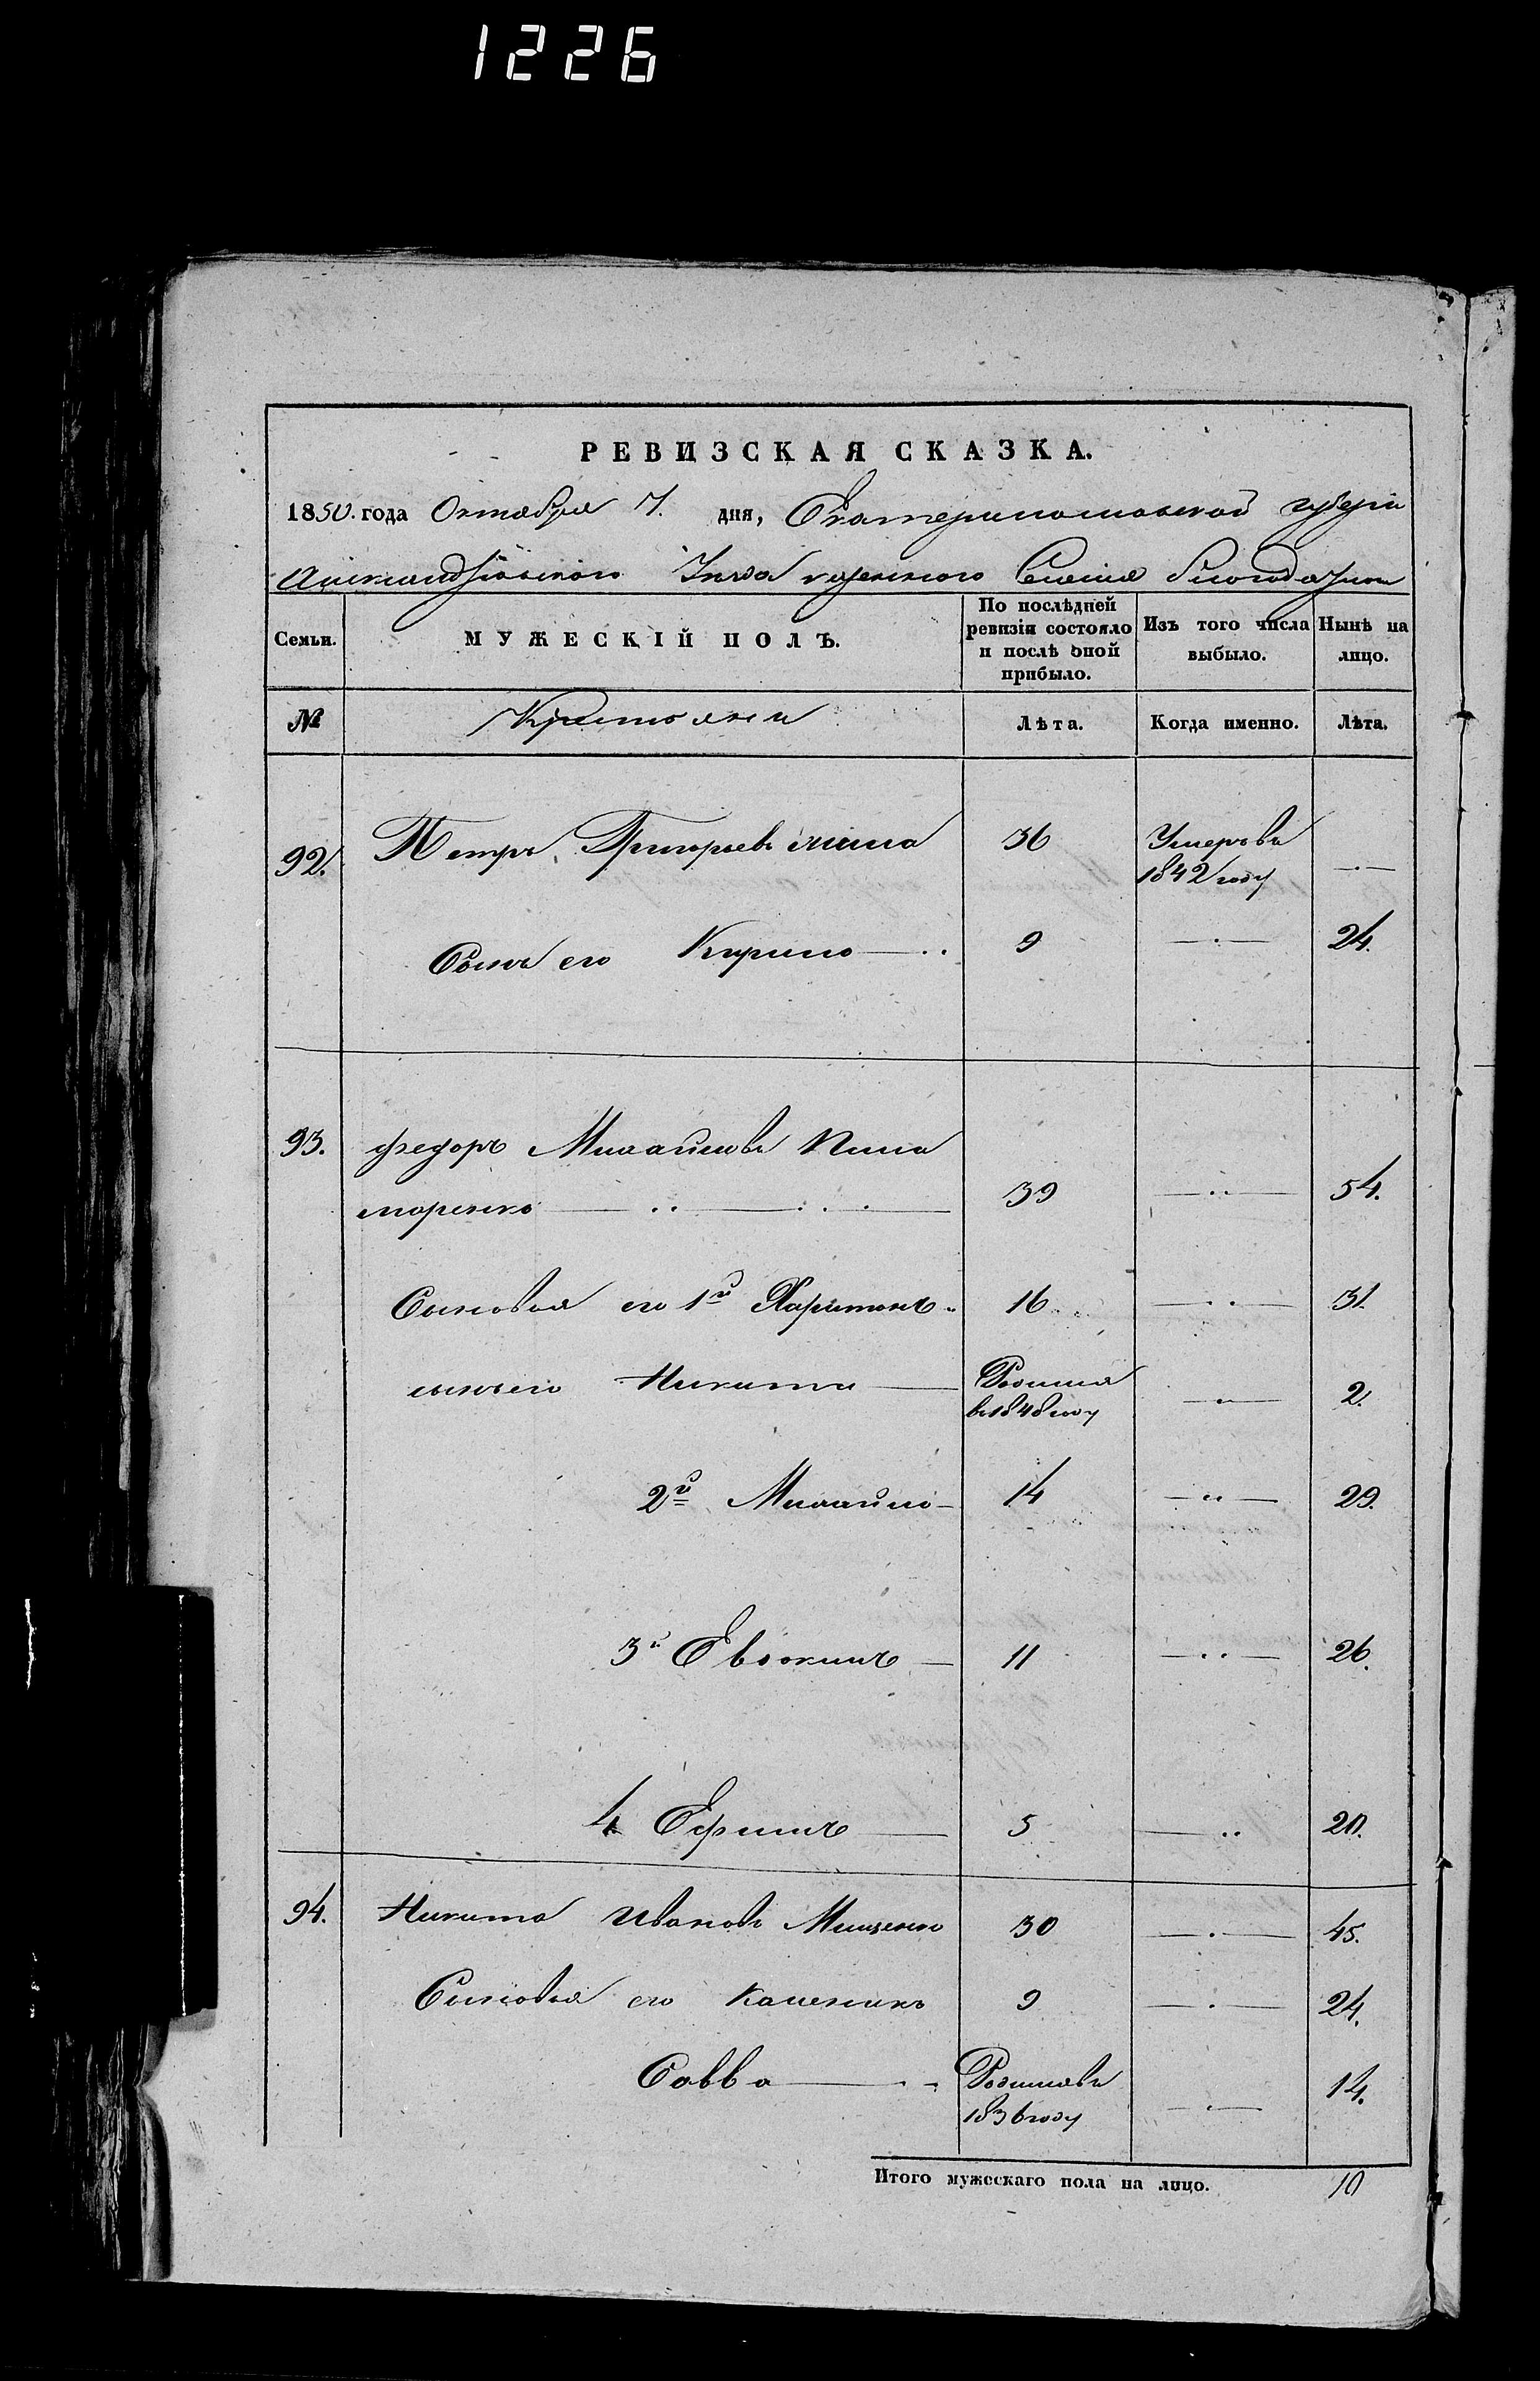 1226
РЕВИЗСКАЯ СКАЗКА.
1850. года Октября 7. дня, Екатеринославской губерніи
Александрійского Уезда казенного Селенія
Семьи.
МУЖЕСКІЙ ПОЛЪ.
По послѣдней ревизіи состояло и послѣ оной прибыло.
Изъ того числа выбыло.
Нынѣ на лицо.
№ Крестьяне Лѣта. Когда именно. Лѣта.
92. Петръ Григорьевъ 36 Умеръ въ 1842 году —
Сынъ его Кирило 9 — 24.
93. Федоръ Михайловъ Поно
маренко 39 — 54.
Сыновья его 1й Харитонъ 16 — 31.
сынъ его Никита Родился въ 1848 году — 2.
2й Михайло 14 — 29.
3й Евдокимъ 11 — 26.
4 Ефимъ 5 — 20.
94. Никита Ивановъ Мищенко 30 — 45.
Сыновья его Каленикъ 9 — 24.
Савва Родился въ 1836 году — 14.
Итого мужескаго пола на лицо. 10